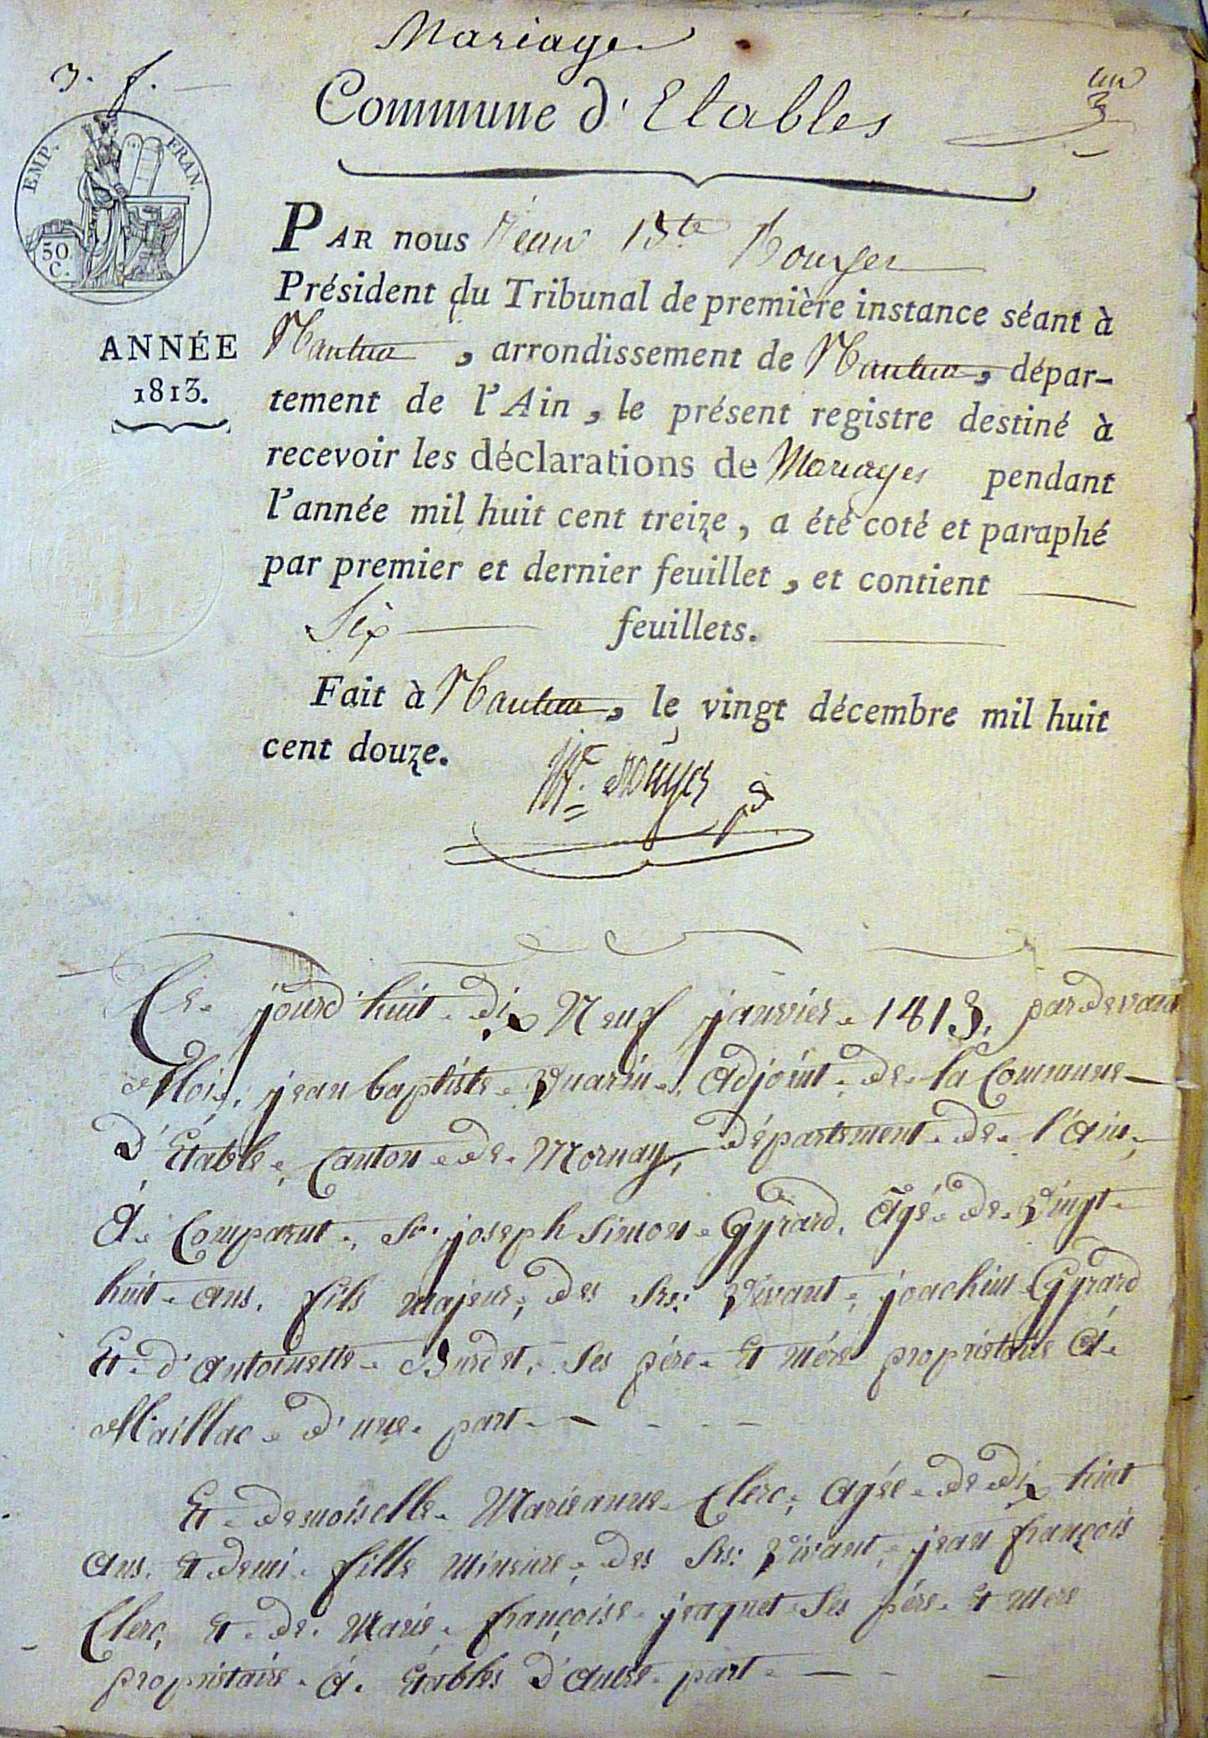 Mariage
3. f.
Commune d'Etables
un
EMP. FRAN.
50 C.
PAR nous Jean Bte Rouyer
Président du Tribunal de première instance séant à
Nantua, arrondissement de Nantua, dépar-
ANNÉE
1813.
tement de l'Ain, le présent registre destiné à
recevoir les déclarations de Mariages pendant
l'année mil huit cent treize, a été coté et paraphé
par premier et dernier feuillet, et contient
Six feuillets.
Fait à Nantua, le vingt décembre mil huit
cent douze.
Rouyer
Ce jourd'huit dix Neuf janvier 1813, pardevant
Moi, jean baptiste Vuarin, Adjoint de la Commune
D'Étable, Canton de Mornay, département de l'Ain,
À Comparut, Sr. joseph Simon Gÿrard, Âgé de Vingt
huit ans, fils Majeur, des Srs: Vivant, joachim Gÿrard
Et d'Antoinette Burdet, Ses père Et Mére propriétaire À
Maillac d'une part
Et demoiselle Marieanne Clerc, Agée de dix huit
Ans, Et demi fille Mineure, des Srs: Vivant, jean françois
Clerc, Et de Marie françoise jeaquet Ses père Et Mere
propriétaire À Étables D'Autre part